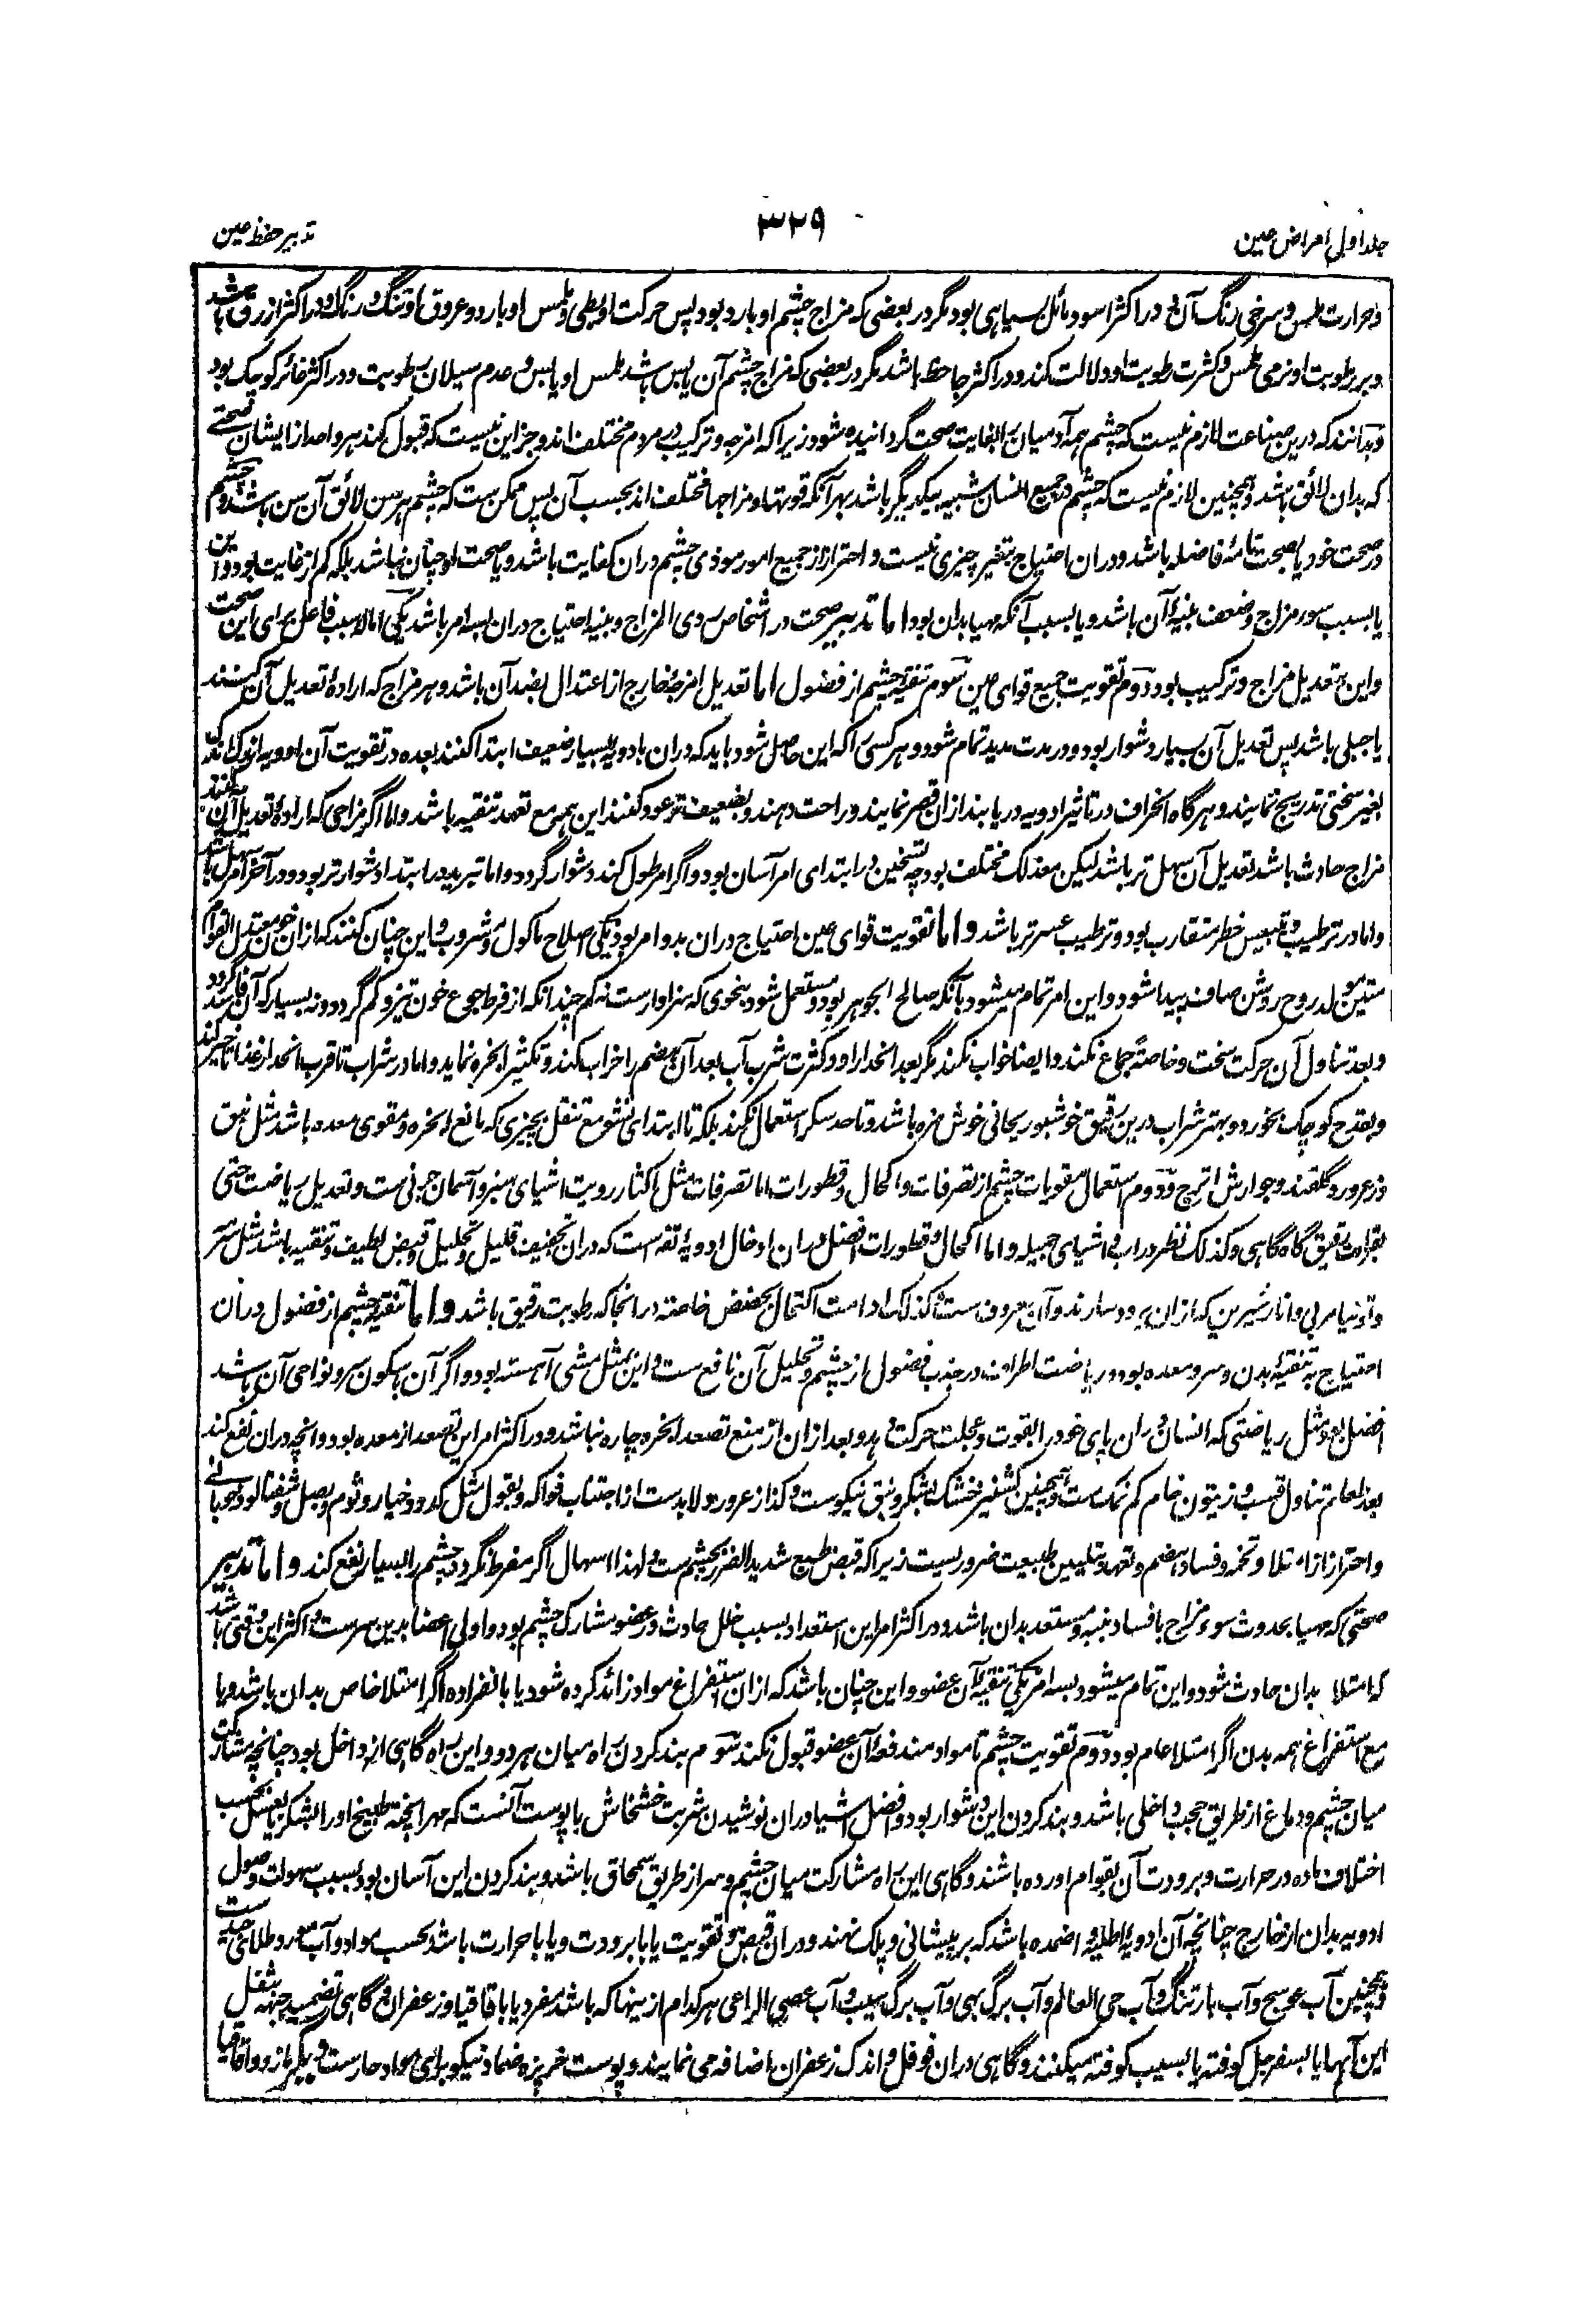 جلد اول امراض عین
۳۲۹
تدبیر حفظ عین
و حرارت لمس و سرخی رنگ آن و در اکثر اسود مائل بسیاهی بود مگر در بعضی که مزاج چشم او بارد بود پس حرکت او بطی و لمس او بارد و عروق او تنگ و رنگ او در اکثر ازرق باشد
و بر رطوبت او نرمی لمس و کثرت رطوبت او دلالت کند و در اکثر جاحظ باشد مگر در بعضی که مزاج چشم آن یابس باشد لمس او یابس و عدم سیلان رطوبت و در اکثر غائر کوچک بود
و بدانند که درین صناعت لازم نیست که چشم همه آدمیان را بغایت صحت گردانیده شود زیرا که امزجه و ترکیب مردم مختلف اند و جز این نیست که قبول کند هر واحد از ایشان صحتی
که بدان لائق باشد و همچنین لازم نیست که چشم در جمیع انسان شبیه بیکدیگر باشد بهر آنکه قوتها و مزاجها مختلف اند بحسب آن پس ممکن ست که چشم هر سن لائق آن سن باشد و چشم
در صحت خود یا بصحت تامه فاضله باشد و دران احتیاج بتغیر چیزی نیست و احتراز از جمیع امور موذی چشم دران کفایت باشد و یا صحت او چنان نباشد بلکه کم از غایت بود و این
یا بسبب سوء مزاج و ضعف بنیه آن باشد و یا بسبب آنکه مهیا بدان بود اما تدبیر صحت در اشخاص ردی المزاج و بنیه احتیاج دران بسه امر باشد یکی امالا سبب فاعل برای این صحت
و این بتعدیل مزاج و ترکیب بود دوم تقویت جمیع قوای عین سوم تنقیه چشم از فضول اما تعدیل امزجه خارج از اعتدال بضد آن باشد و هر مزاج که ارادهٔ تعدیل آن کنند
یا جبلی باشد پس تعدیل آن بسیار دشوار بود و در مدت مدید تمام شود و هر کسی را که این حاصل شود باید که دران بادویه بسیار ضعیف ابتدا کنند بعده در تقویت آن ادویه اندک اندک
بغیر سختی تدریج نمایند و هر گاه انحراف در تاثیر ادویه دریابند ازان قصر نمایند و راحت دهند و بضعیف تر عود کنند این همه مع تعهد تنقیه باشد و اما اگر مزاجی که ارادهٔ تعدیل آن کنند
مزاج حادث باشد تعدیل آن سهل تر باشد لیکن معذلک مختلف بود چه تسخین در ابتدای امر آسان بود و اگر امر طول کند دشوار گردد و اما تبرید در ابتدا دشوارتر بود و در آخر امر سهل باشد
و اما در ترطیب و تیبیس خطر متقارب بود و ترطیب عسرتر باشد و اما تقویت قوای عین احتیاج دران بدو امر بود یکی اصلاح ماکول و مشروب و این چنان کنند که ازان خون معتدل القوام
متین مولد روح روشن صاف پیدا شود و این امر تمام میشود بآنکه صالح الجوهر بود و مستعمل شود بنحوی که سزاوارست نه کم چندانکه از فرط جوع خون تیز و کم گردد و نه بسیار که آن فاسد گردد
و بعد تناول آن حرکت سخت و خاصةً جماع نکند و ایضا خواب نکند مگر بعد انحدار او و کثرت شرب آب بعد آن هضم را خراب کند و تکثیر ابخره نماید و اما در شراب تا قرب انحدار غذا تاخیر کند
و بقدح کوچک بخورد و بهتر شراب درین رقیق خوشبو ریحانی خوش مزه باشد و تا حد سکر استعمال نکند بلکه تا ابتدای نشو مع تنقل بچیزی که مانع ابخره و مقوی معده باشد مثل نبق
و زعرور و گلقند و جوارش اترج و دوم استعمال مقویات چشم از تصرفات و اکحال و قطورات اما تصرفات مثل اکثار رویت اشیای سبز و آسمان جونی ست و تعدیل ریاضت حتی
بقراءت دقیق گاه گاهی و کذلک نظر در اشیای جمیله و اما اکحال و قطورات افضل دران ادخال ادویه ایست که دران تجفیف قلیل و تحلیل و قبض لطیف و تنقیه باشد مثل
و توتیا مربی و انار شیرین که ازان برود سازند و آن معروف ست و کذلک ادامت اکتحال بحضض خاصته در آنجا که رطوبت رقیق باشد و اما تنقیه چشم از فضول دران
احتیاج به تنقیهٔ بدن و سر و معده بود و ریاضت اطراف در جذب فضول از چشم و تحلیل آن نافع ست و این مثل مشی آهسته بود و اگر آن بسکون سر و نواحی آن باشد
افضل بود مثل ریاضتی که انسان دران پای خود را بقوت و عجلت حرکت دهد و بعد ازان از منع تصعد ابخره چاره نباشد و در اکثر امر این تصعد از معده بود و آنچه دران نفع کند
بعد طعام تناول قسب و زیتون خام کم نمک ست و همچنین کشنیز خشک بشکر و نبق نیکوست و کذا زعرور و لابدست از اجتناب فواکه و بقول مثل کدو و خیار و ثوم و بصل و شفتالو و حبوبات
و احتراز از امتلا و تخمه و فساد هضم و تعهد و تلیین طبیعت ضروریست زیرا که قبض طبع شدید الضرر بچشم ست و لهذا اسهال اگر مفرط نگردد چشم را بسیار نفع کند و اما تدبیر
صحتی که مهیا بحدوث سوء مزاج یا فساد بنیه و مستعد بدان باشد و در اکثر امر این استعداد بسبب خلل حادث در عضو مشارک چشم بود و اولی اعضا بدین سر ست و اکثر این وقتی باشد
که امتلا بدان حادث شود و این تمام میشود بسه امر یکی تنقیه آن عضو و این چنان باشد که ازان استفراغ مواد زائد کرده شود یا بانفراده اگر امتلا خاص بدان باشد و یا
مع استفراغ همه بدن اگر امتلا عام بود دوم تقویت چشم تا مواد مندفعه آن عضو قبول نکند سوم بند کردن راه میان هر دو و این راه گاهی از داخل بود چنانچه مشارکت
میان چشم و دماغ از طریق حجب داخلی باشد و بند کردن این دشوار بود و افضل اشیا دران نوشیدن شربت خشخاش با پوست آنست که مهرا پخته طبیخ او را بشکر یا بعسل بحسب
اختلاف ماده در حرارت و برودت آن بقوام آورده باشند و گاهی این راه مشارکت میان چشم و سر از طریق سمحاق باشد و بند کردن این آسان بود بسبب سهولت وصول
ادویه بدان از خارج چنانچه آن ادویه اطلیه و اضمده باشد که بر پیشانی و پلک نهند و دران قبض و تقویت یا با برودت و یا با حرارت باشد بحسب مواد و آب مورد طلای جید ست
و همچنین آب عوسج و آب بارتنگ و آب حی العالم و آب برگ بهی و آب برگ سیب و آب عصی الراعی هر کدام از ینها که باشد مفرد یا با اقاقیا و زعفران و گاهی تضمید جبهه بثفل
این آبها یا بسفرجل کوفته یا بسیب کوفته میکنند و گاهی دران فوفل و اندک زعفران اضافه می نمایند و پوست خربزه ضماد نیکو برای مواد حار ست و دیگر مازو و اقاقیا